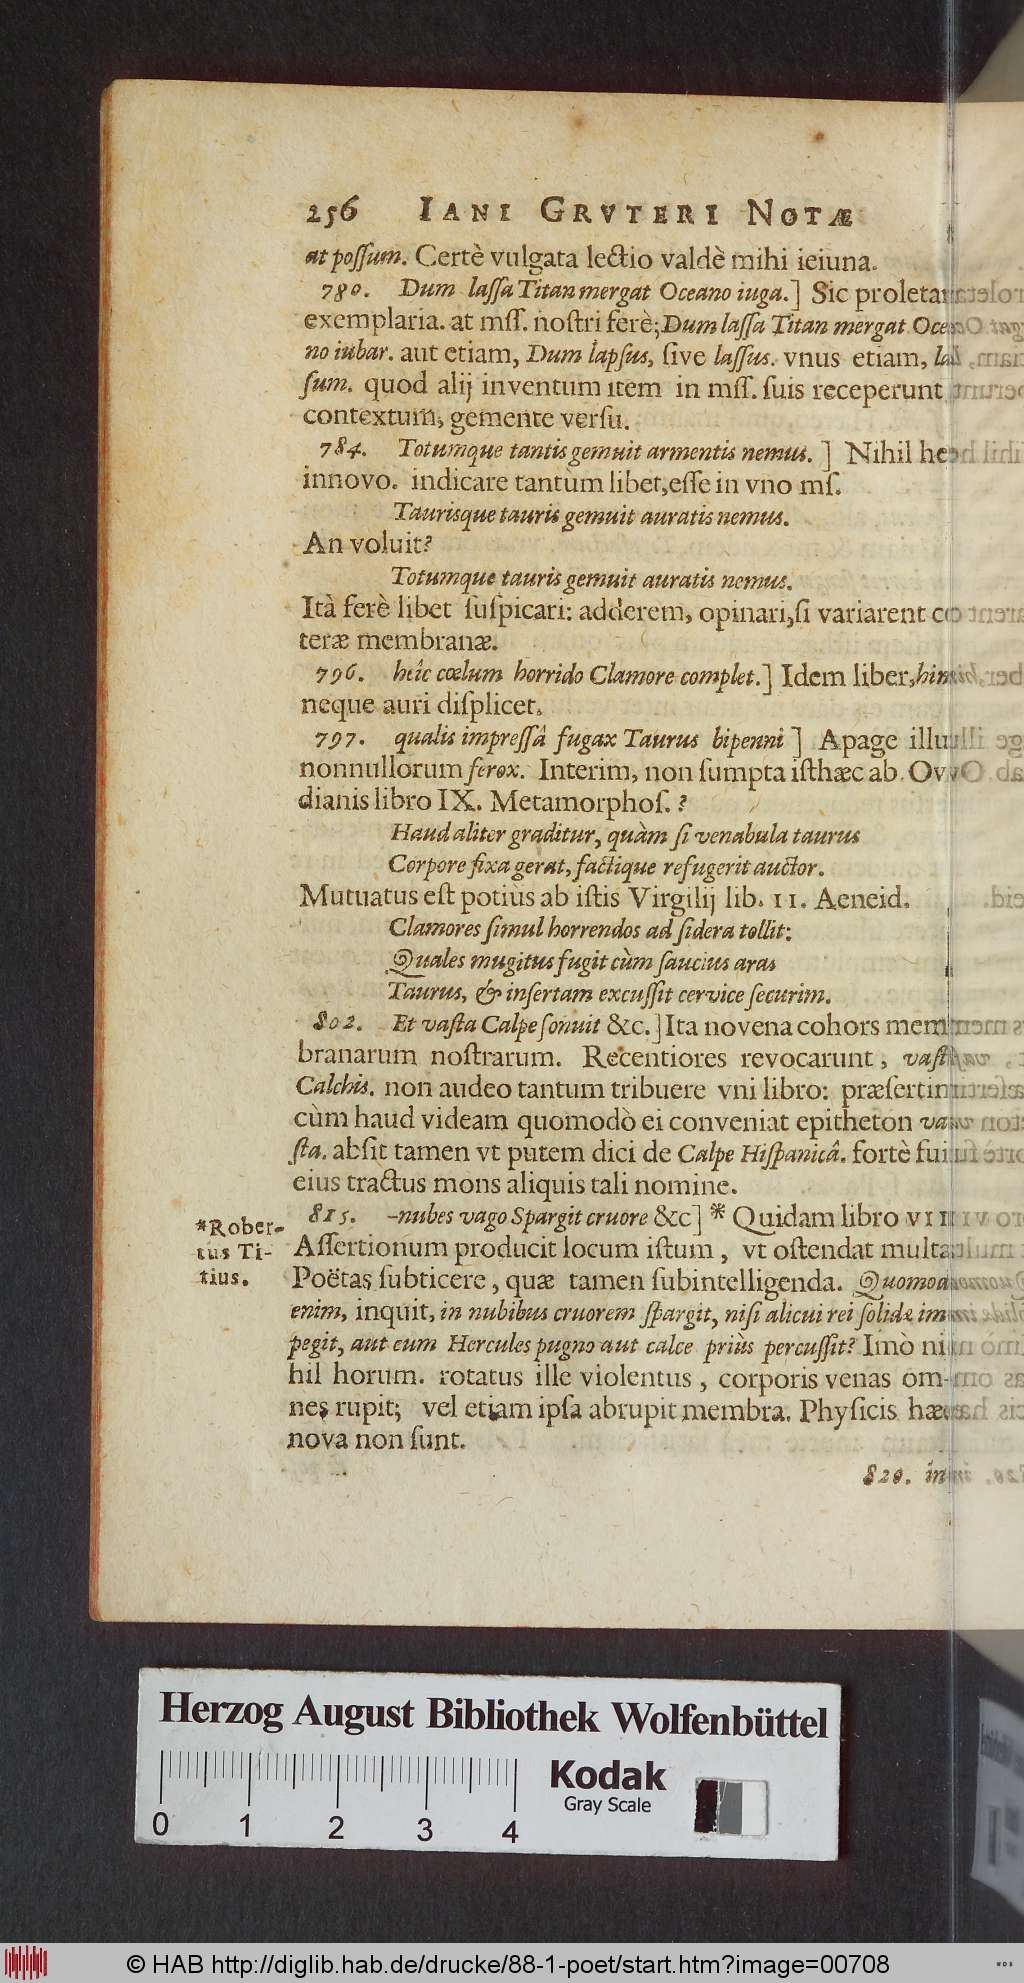 256 IANI GRVTERI NOTÆ
at possum. Certè vulgata lectio valdè mihi ieiuna.
780. Dum lassa Titan mergat Oceano iuga.] Sic proleta
exemplaria. at mss. nostri ferè; Dum lassa Titan mergat Ocea
no iubar. aut etiam, Dum lapsus, sive lassus. vnus etiam, la
sum. quod alij inventum item in mss. suis receperunt
contextum, gemente versu.
784. Totumque tantis gemuit armentis nemus.] Nihil hec
innovo. indicare tantum libet, esse in vno ms.
Taurisque tauris gemuit auratis nemus.
An voluit?
Totumque tauris gemuit auratis nemus.
Ità ferè libet suspicari: adderem, opinari, si variarent ce
teræ membranæ.
796. heîc cœlum horrido Clamore complet.] Idem liber, hinc
neque auri displicet.
797. qualis impressâ fugax Taurus bipenni] Apage illu
nonnullorum ferox. Interim, non sumpta isthæc ab Ovi
dianis libro IX. Metamorphos.?
Haud aliter graditur, quàm si venabula taurus
Corpore fixa gerat, factique refugerit auctor.
Mutuatus est potiùs ab istis Virgilij lib. 11. Aeneid.
Clamores simul horrendos ad sidera tollit:
Quales mugitus fugit cùm saucius aras
Taurus, & insertam excussit cervice securim.
802. Et vasta Calpe sonuit &c.] Ita novena cohors mem
branarum nostrarum. Recentiores revocarunt, vast
Calchis. non audeo tantum tribuere vni libro: præsertim
cùm haud videam quomodò ei conveniat epitheton va
sta. absit tamen vt putem dici de Calpe Hispanicâ. fortè fui
eius tractus mons aliquis tali nomine.
815. -nubes vago Spargit cruore &c] * Quidam libro VIII
*Rober-
tus Ti-
tius.
Assertionum producit locum istum, vt ostendat multa
Poëtas subticere, quæ tamen subintelligenda. Quomodo
enim, inquit, in nubibus cruorem spargit, nisi alicui rei solidæ im
pegit, aut eum Hercules pugno aut calce priùs percussit? Imò ni
hil horum. rotatus ille violentus, corporis venas om-
nes rupit; vel etiam ipsa abrupit membra. Physicis hæc
nova non sunt.
820. in
Herzog August Bibliothek Wolfenbüttel
Kodak
Gray Scale
0 1 2 3 4
© HAB http://diglib.hab.de/drucke/88-1-poet/start.htm?image=00708